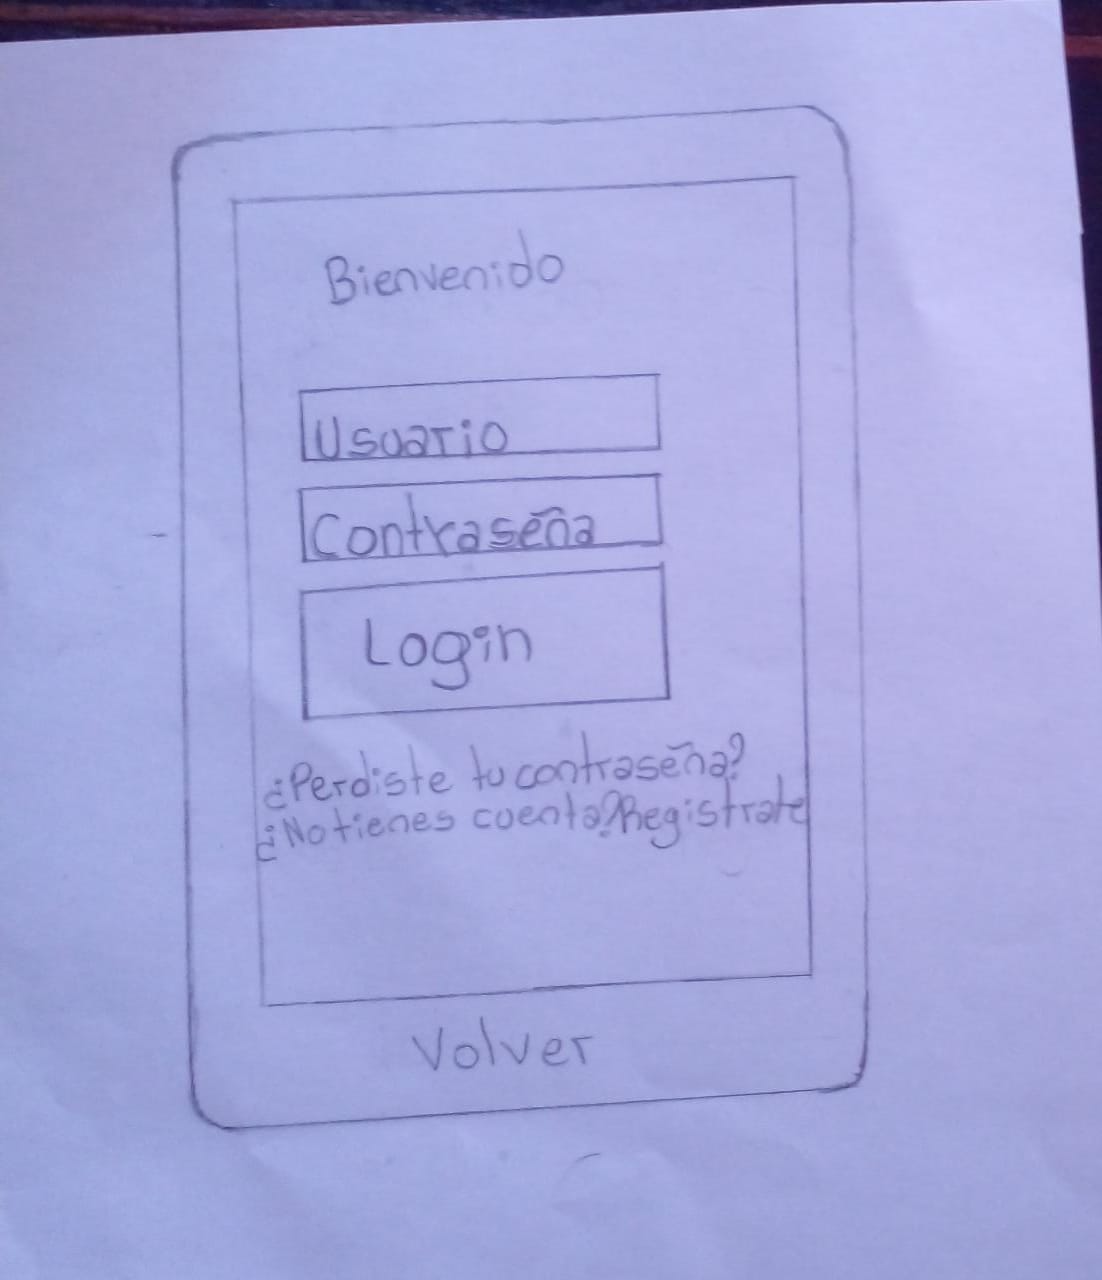 Bienvenido
Usuario
Contraseña
Login
¿Perdiste tu contraseña?
¿No tienes cuenta? Registrate
Volver